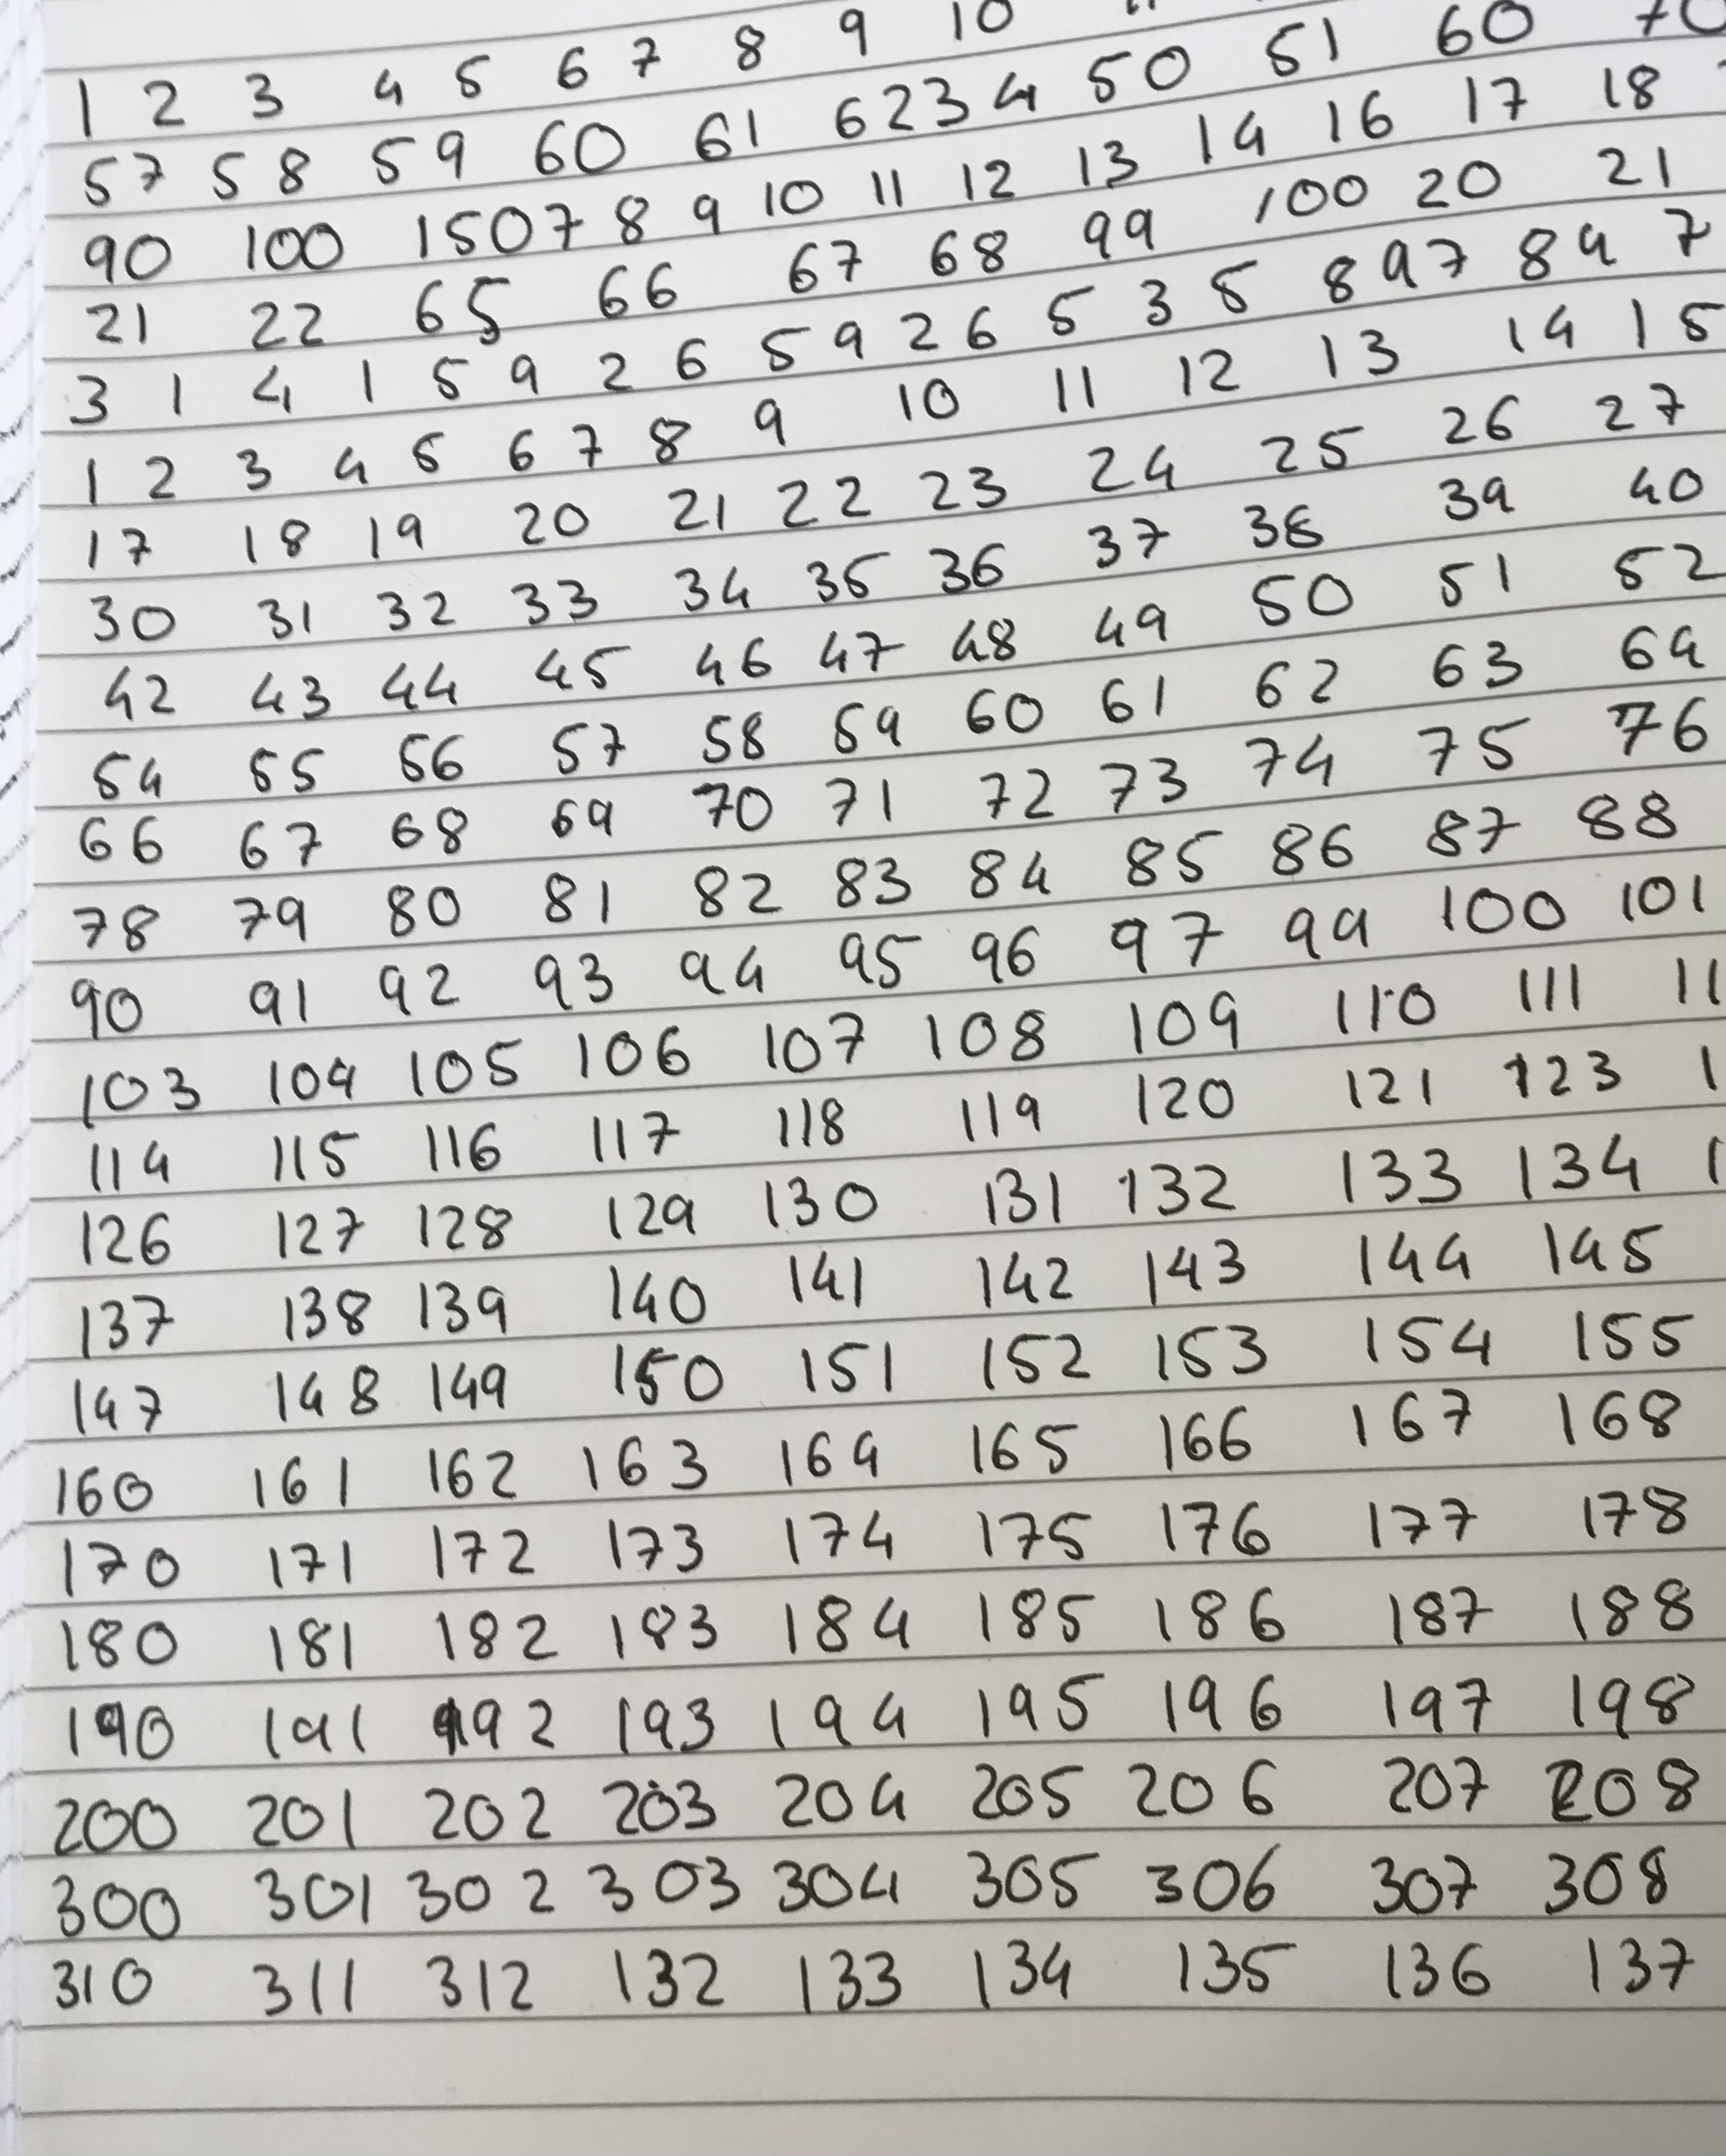 1 2 3 4 5 6 7 8 9 10
57 58 59 60 61 62 3 4 50 51 60 70
90 100 150 7 8 9 10 11 12 13 14 16 17 18
21 22 65 66 67 68 99 100 20 21
3 1 4 1 5 9 2 6 5 9 2 6 5 3 5 8 9 7 8 9 7
1 2 3 4 5 6 7 8 9 10 11 12 13 14 15
17 18 19 20 21 22 23 24 25 26 27
30 31 32 33 34 35 36 37 38 39 40
42 43 44 45 46 47 48 49 50 51 52
54 55 56 57 58 59 60 61 62 63 64
66 67 68 69 70 71 72 73 74 75 76
78 79 80 81 82 83 84 85 86 87 88
90 91 92 93 94 95 96 97 99 100 101
103 104 105 106 107 108 109 110 111
114 115 116 117 118 119 120 121 123
126 127 128 129 130 131 132 133 134
137 138 139 140 141 142 143 144 145
147 148 149 150 151 152 153 154 155
160 161 162 163 164 165 166 167 168
170 171 172 173 174 175 176 177 178
180 181 182 183 184 185 186 187 188
190 191 192 193 194 195 196 197 198
200 201 202 203 204 205 206 207 208
300 301 302 303 304 305 306 307 308
310 311 312 132 133 134 135 136 137